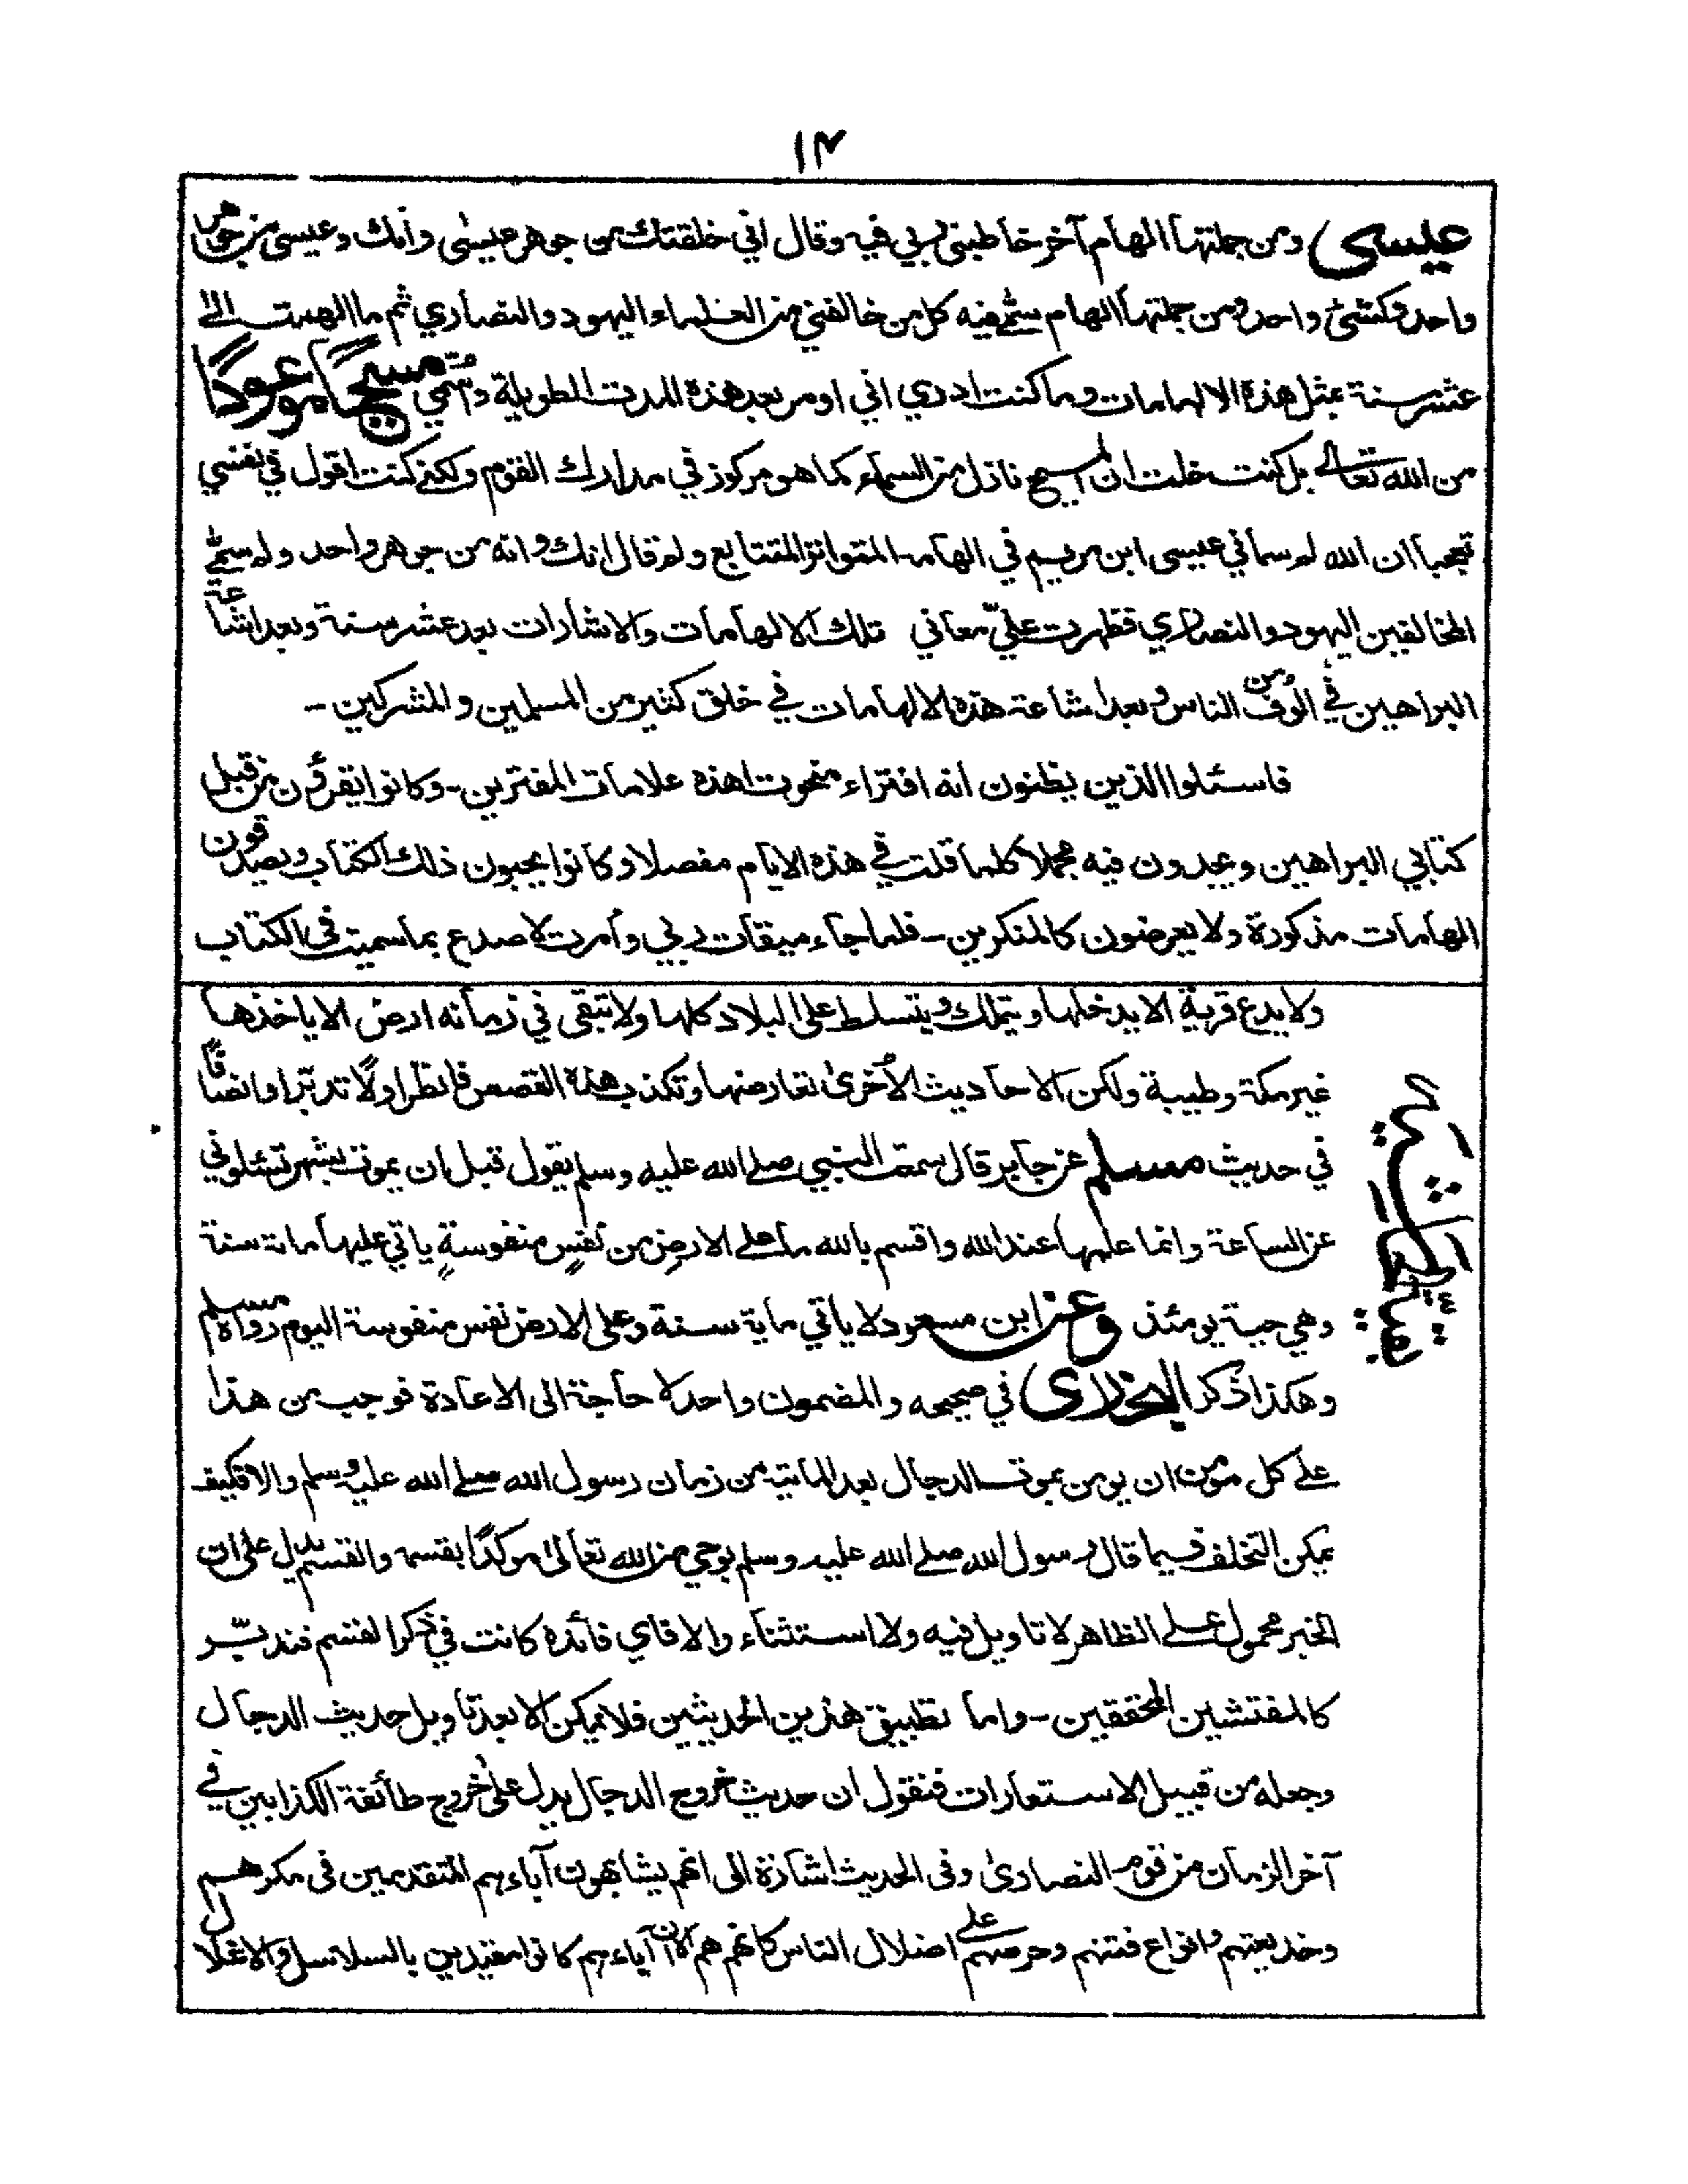 ١٤
عيسى ومن جملتها الهام آخر خاطبني ربي فيه وقال اني خلقتك من جوهر عيسى وانك وعيسى من جوهر
واحد وكشيئ واحد ومن جملتها الهام سمّى فيه كل من خالفني من العلماء اليهود والنصارى ثم ما الهمت الى
عشر سنة بمثل هذه الالهامات وما كنت ادري اني اومر بعد هذه المدت الطويلة واسمّي مسيحًا موعودًا
من الله تعالى بل كنت خلت ان المسيح نازل من السماء كما هو مركوز في مدارك القوم ولكني كنت اقول في نفسي
تعجبا ان الله لم سماني عيسى ابن مريم في الهامه المتواتر المتتابع ولم قال انك وانه من جوهر واحد ولم سمّى
المخالفين اليهود والنصارى فظهرت عليّ معاني تلك الالهامات والاشارات بعد عشر سنة وبعد اشاعة
البراهين في الوف من الناس وبعد اشاعة هذه الالهامات في خلق كثير من المسلمين والمشركين -
فاسئلوا الذين يظنون انه افتراء منحوت اهذه علامات المفترين - وكانوا يقرؤن من قبل
كتابي البراهين ويجدون فيه مجملا كلما قلت في هذه الايام مفصلا وكانوا يحبون ذلك الكتاب ويصدقون
الهامات مذكورة ولا يعرضون كالمنكرين - فلما جاء ميقات ربي وأمرت لاصدع بما سميت في الكتاب
ولا يدع قرية الا يدخلها ويتملك ويتسلط على البلاد كلها ولا تبقى في زمانه ارض الا ياخذها
غير مكة وطيبة ولكن الاحاديث الأخرى تعارضها وتكذب هذه القصص فانظر اولًا تدبّرا وانصافًا
في حديث مسلم عن جابر قال سمعت النبي صلى الله عليه وسلم يقول قبل ان يموت بشهر تسئلوني
عن الساعة وانما علمها عند الله واقسم بالله ما على الارض من نفسٍ منفوسةٍ ياتي عليها مائة سنة
وهي حية يومئذ وعن ابن مسعود لا ياتي ماية سنة وعلى الارض نفس منفوسة اليوم رواه مسلم
وهكذا ذكر البخارى في صحيحه والمضمون واحد لا حاجة الى الاعادة فوجب من هذا
على كل مؤمن ان يومن بموت الدجال بعد المائية من زمان رسول الله صلى الله عليه وسلم والا فكيف
يمكن التخلف فيما قال رسول الله صلى الله عليه وسلم بوحي من الله تعالى موكدًا بقسمه والقسم يدل على ان
الخبر محمول على الظاهر لا تاويل فيه ولا استثناء والا فاي فائدة كانت في ذكر القسم فتدبّر
كالمفتشين المحققين - واما تطبيق هذين الحديثين فلا يمكن الا بعد تاويل حديث الدجال
وجعله من قبيل الاستعارات فنقول ان حديث خروج الدجال يدل على خروج طائفة الكذابين في
آخر الزمان من قوم النصارى وفى الحديث اشارة الى انهم يشابهون آباءهم المتقدمين فى مكرهم
وخديعتهم وانواع فتنهم وحرصهم على اضلال الناس كانهم هم الا ان آباءهم كانوا مقيدين بالسلاسل والاغلال